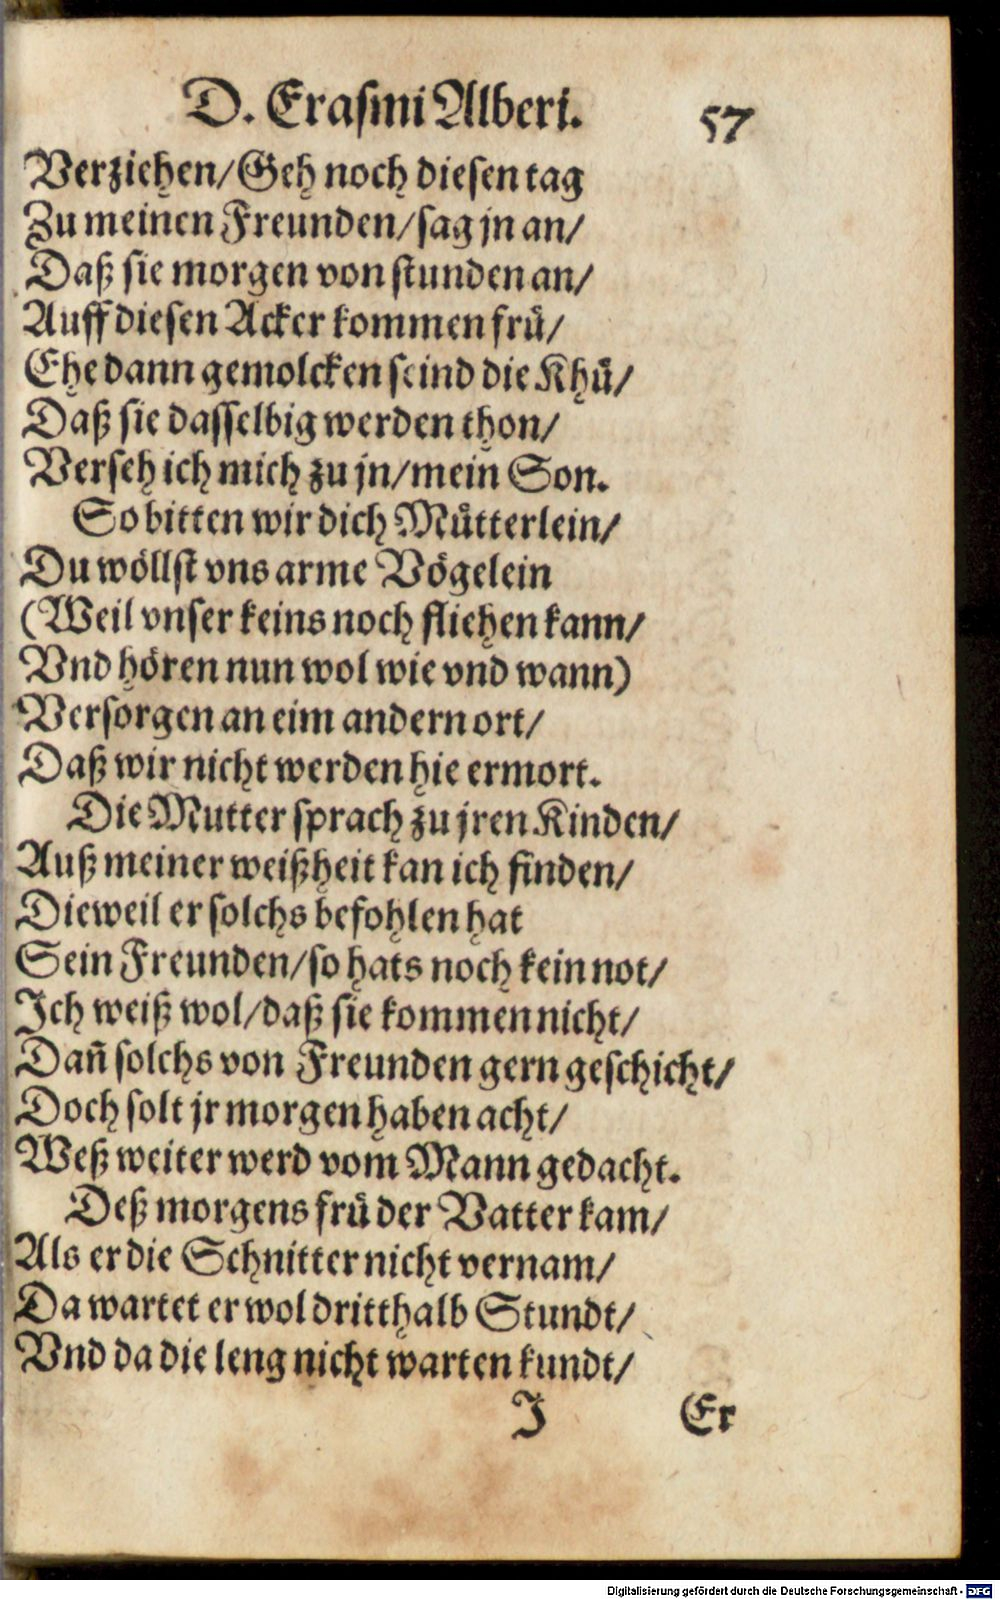 D. Erasmi Alberi. 57
Verziehen/Geh noch diesen tag
Zu meinen Freunden/sag jn an/
Daß sie morgen von stunden an/
Auff diesen Acker kommen fruͤ/
Ehe dann gemolcken seind die Khuͤ/
Daß sie dasselbig werden thon/
Verseh ich mich zu jn/mein Son.
So bitten wir dich Muͤtterlein/
Du woͤllst vns arme Voͤgelein
(Weil vnser keins noch fliehen kann/
Vnd hoͤren nun wol wie vnd wann)
Versorgen an eim andern ort/
Daß wir nicht werden hie ermort.
Die Mutter sprach zu jren Kinden/
Auß meiner weißheit kan ich finden/
Dieweil er solchs befohlen hat
Sein Freunden/so hats noch kein not/
Ich weiß wol/daß sie kommen nicht/
Dañ solchs von Freunden gern geschicht/
Doch solt jr morgen haben acht/
Weß weiter werd vom Mann gedacht.
Deß morgens fruͤ der Vatter kam/
Als er die Schnitter nicht vernam/
Da wartet er wol dritthalb Stundt/
Vnd da die leng nicht warten kundt/
I Er
Digitalisierung gefördert durch die Deutsche Forschungsgemeinschaft - DFG